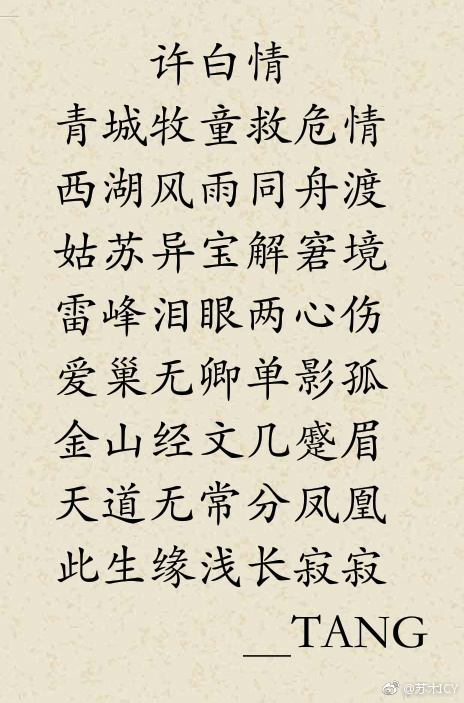 许白情
青城牧童救危情
西湖风雨同舟渡
姑苏异宝解窘境
雷峰泪眼两心伤
爱巢无卿单影孤
金山经文几蹙眉
天道无常分凤凰
此生缘浅长寂寂
__TANG
@苏术ICY